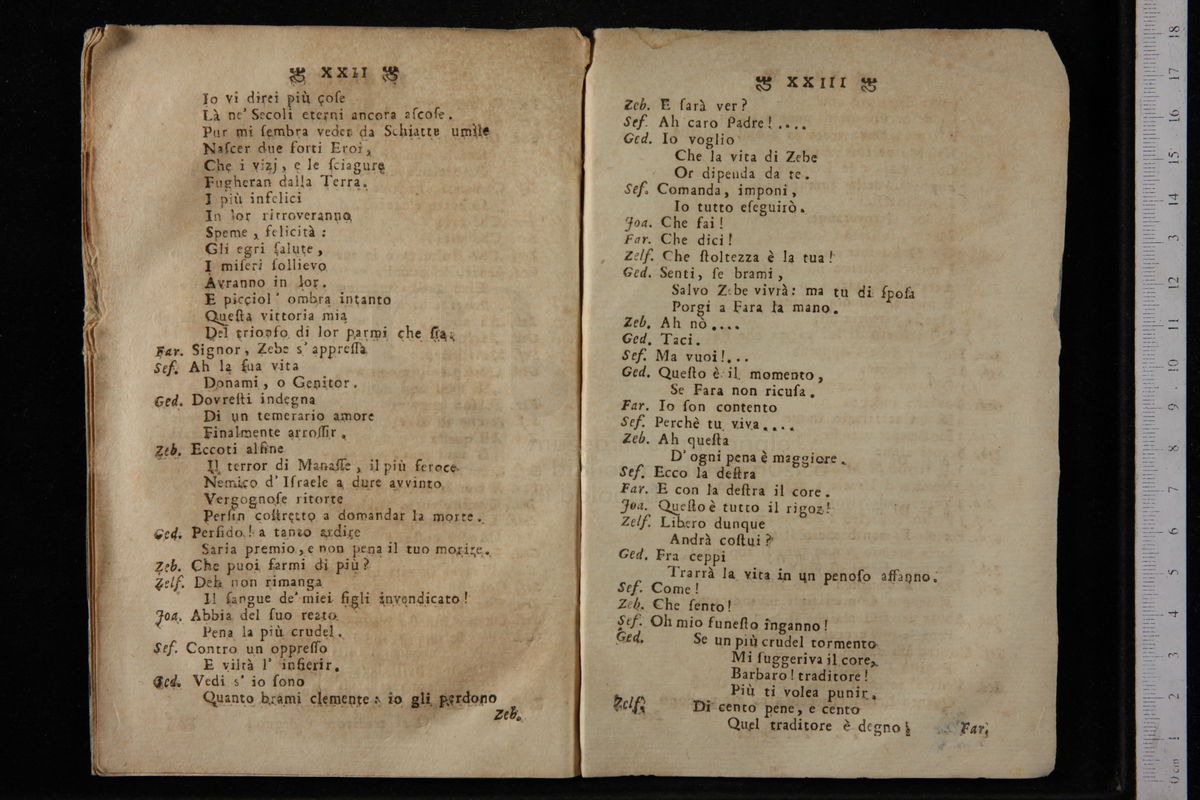 XXII
Io vi direi più coſe
Là ne' Secoli eterni ancora aſcoſe.
Pur mi ſembra veder da Schiatte umile
Naſcer due forti Eroi,
Che i vizj, e le ſciagure
Fugheran dalla Terra.
I più infelici
In lor ritroveranno
Speme, felicità:
Gli egri ſalute,
I miſeri ſollievo
Avranno in lor.
E picciol' ombra intanto
Queſta vittoria mia
Del trionfo di lor parmi che ſia.
Far. Signor, Zebe s' appreſſa
Sef. Ah la ſua vita
Donami, o Genitor.
Ged. Dovreſti indegna
Di un temerario amore
Finalmente arroſſir.
Zeb. Eccoti alfine
Il terror di Manaſſe, il più feroce
Nemico d' Iſraele a dure avvinto
Vergognoſe ritorte
Perſin coſtretto a domandar la morte.
Ged. Perfido! a tanto ardire
Saria premio, e non pena il tuo morire.
Zeb. Che puoi farmi di più?
Zelf. Deh non rimanga
Il ſangue de' miei figli invendicato!
Joa. Abbia del ſuo reato
Pena la più crudel.
Sef. Contro un oppreſſo
E viltà l' infierir.
Ged. Vedi s' io ſono
Quanto brami clemente: io gli perdono
Zeb.
XXIII
Zeb. E ſarà ver?
Sef. Ah caro Padre!....
Ged. Io voglio
Che la vita di Zebe
Or dipenda da te.
Sef. Comanda, imponi,
Io tutto eſeguirò.
Joa. Che fai!
Far. Che dici!
Zelf. Che ſtoltezza è la tua!
Ged. Senti, ſe brami,
Salvo Zebe vivrà: ma tu di ſpoſa
Porgi a Fara la mano.
Zeb. Ah nò....
Ged. Taci.
Sef. Ma vuoi!...
Ged. Queſto è il momento,
Se Fara non ricuſa.
Far. Io ſon contento
Sef. Perchè tu viva....
Zeb. Ah queſta
D' ogni pena è maggiore.
Sef. Ecco la deſtra
Far. E con la deſtra il core.
Joa. Queſto è tutto il rigor!
Zelf. Libero dunque
Andrà coſtui?
Ged. Fra ceppi
Trarrà la vita in un penoſo affanno.
Sef. Come!
Zeb. Che ſento!
Sef. Oh mio funeſto inganno!
Ged. Se un più crudel tormento
Mi ſuggeriva il core,
Barbaro! traditore!
Più ti volea punir.
Zelf. Di cento pene, e cento
Quel traditore è degno;
Far.
0 cm 1 2 3 4 5 6 7 8 9 10 11 12 3 14 15 16 17 18